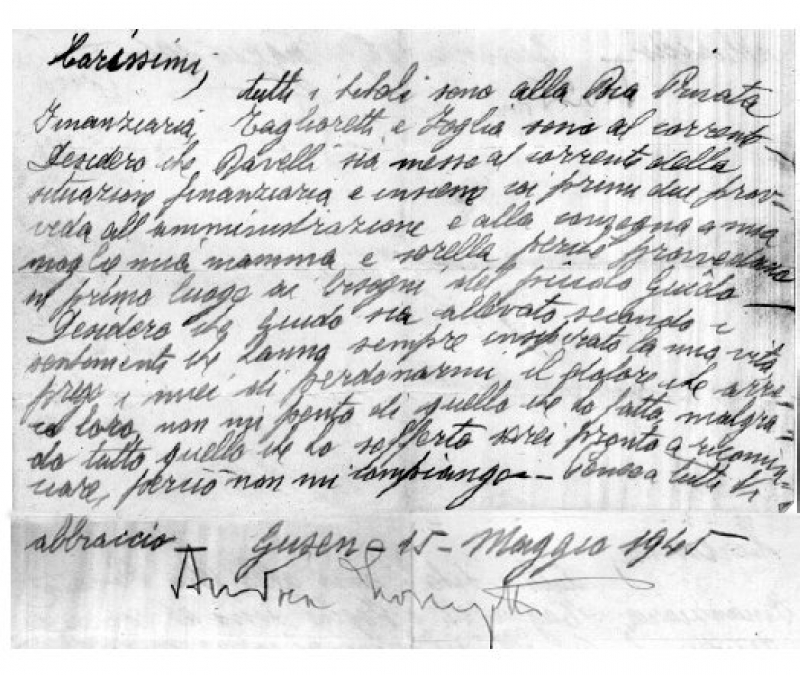 Carissimi,
tutti i titoli sono alla Bca Privata
Finanziaria, Taglioretti e Foglia sono al corrente –
Desidero che Ravelli sia messo al corrente della
situazione finanziaria e insieme coi primi due prov-
veda all'amministrazione e alla consegna a mia
moglie mia mamma e sorella perché provvedano
in primo luogo ai bisogni del piccolo Guido –
Desidero che Guido sia allevato secondo i
sentimenti che hanno sempre inspirato la mia vita
prego i miei di perdonarmi il dolore che arre-
co loro, non mi pento di quello che ho fatto, malgra-
do tutto quello che ho sofferto sarei pronto a ricomin-
ciare, perciò non mi compiango – tutti Vi
abbraccio Gusen – 15 – Maggio 1945
Andrea